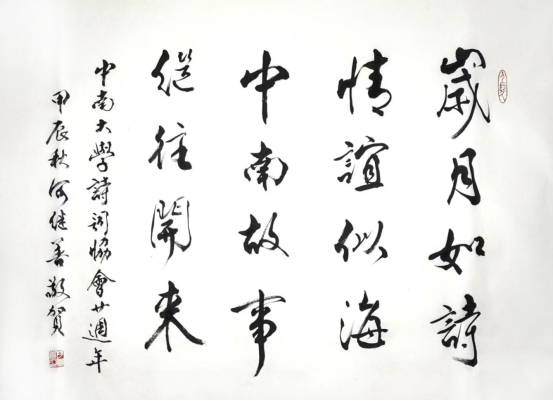 歲月如詩
情誼似海
中南故事
繼往開来
中南大學詩詞協會廿週年
甲辰秋何继善敬賀